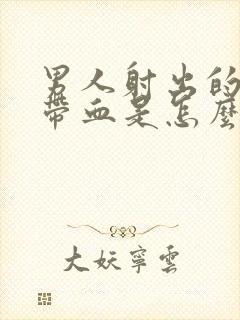 男人射出的
帶血是怎麼
大妖寧雲